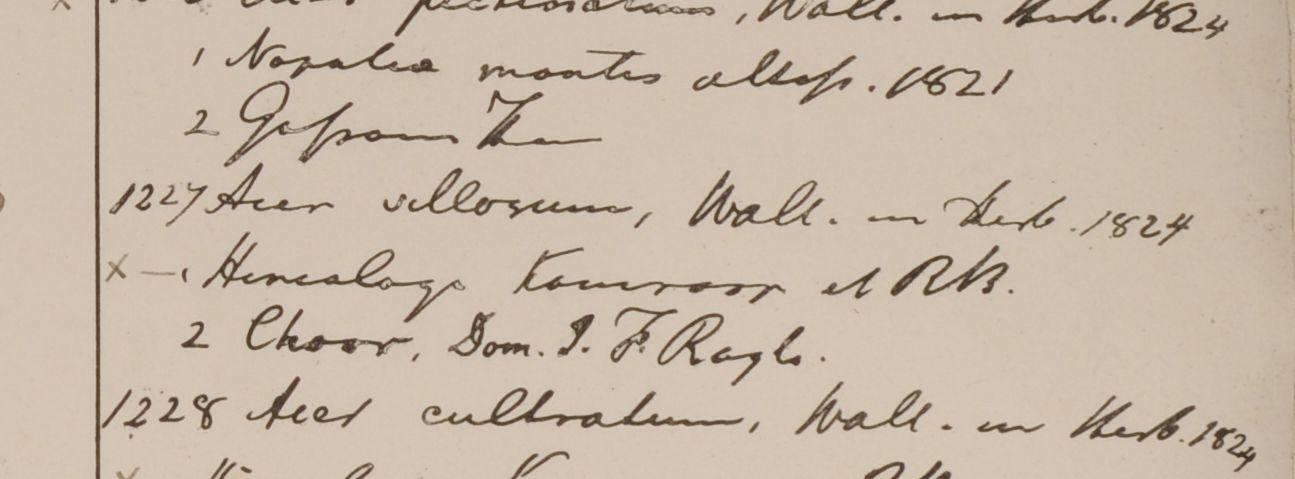 Acer pectinatum, Wall. in Herb. 1824
1 Napalia montes altiss. 1821
2 Gossain Than
1227 Acer villosum, Wall. in Herb. 1824
x — 1 Himalaya Kamroop et RB.
2 Choor, Dom. J. F. Royle.
1228 Acer cultratum, Wall. in Herb. 1824